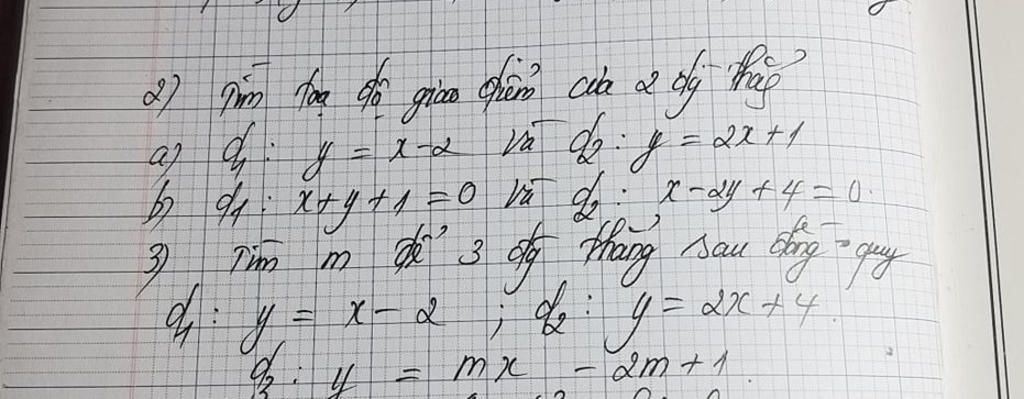 2) Tìm toạ độ giao điểm của 2 đg thẳg
a) d1 : y = x - 2 và d2 : y = 2x + 1
b) d1 : x + y + 1 = 0 và d2 : x - 2y + 4 = 0
3) Tìm m để 3 đg thẳng sau đồng quy
d1 : y = x - 2 ; d2 : y = 2x + 4.
d3 : y = mx - 2m + 1